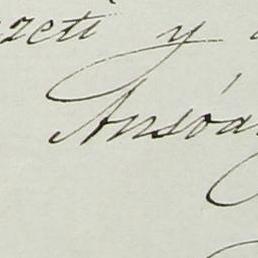 zeti y
Ansóa